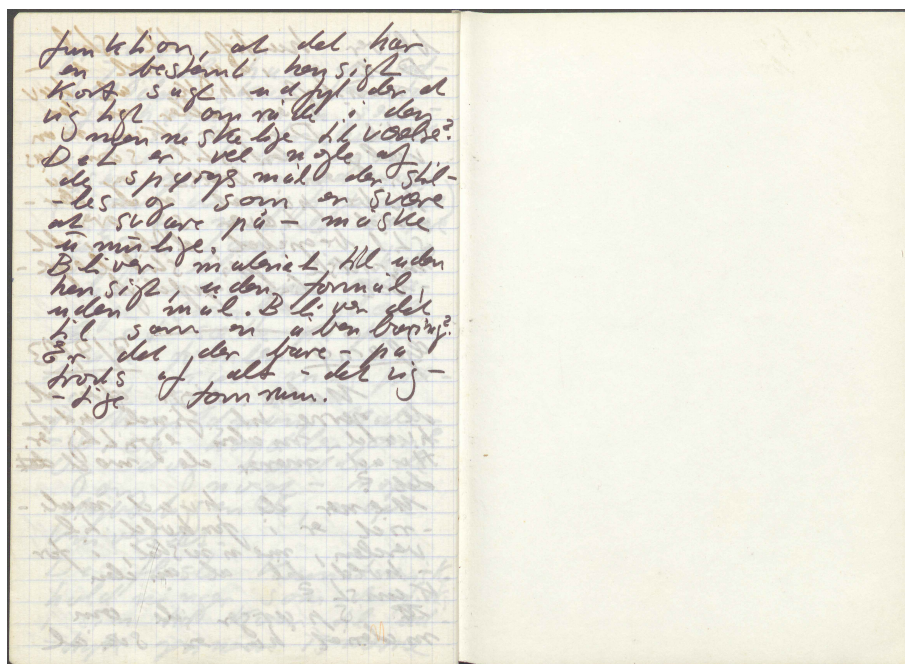 funktion, at det har
en bestemt hensigt
Kort sagt udfyl der et
vigtigt område i den
menneskelige tilværelse?
Det er vel nogle af
de spørgsmål der stil-
-les og som er svære
at svare på - måske
umulige.
Bliver maleriet till uden
hensigt, uden formål,
uden mål. Bliver det
til som en åbenbaring?
Er det der bare - på
trods af alt - det vig-
-tige tomrum.